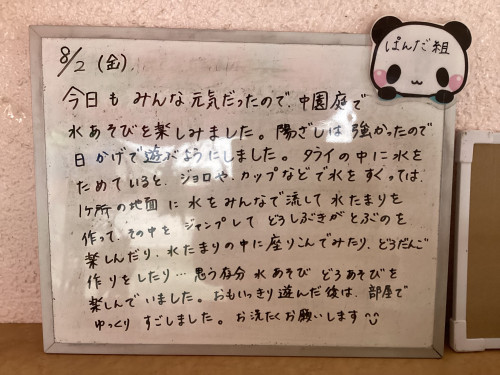 ぱんだ組
8/2 (金)
今日も みんな 元気だったので、中園庭で
水あそびを楽しみました。陽ざしは 強かったので
日かげで遊ぶようにしました。タライの中に水を
ためていると、ジョロや、カップなどで水をすくっては、
1ヶ所の地面 に 水をみんなで流して 水たまりを
作って、その中を ジャンプして どろしぶきが とぶのを
楽しんだり、水たまりの中に座りこんでみたり、どろだんご
作りをしたり… 思う存分 水あそび どろあそびを
楽しんでいました。おもいっきり遊んだ後は、部屋で
ゆっくり すごしました。 お洗たくお願いします